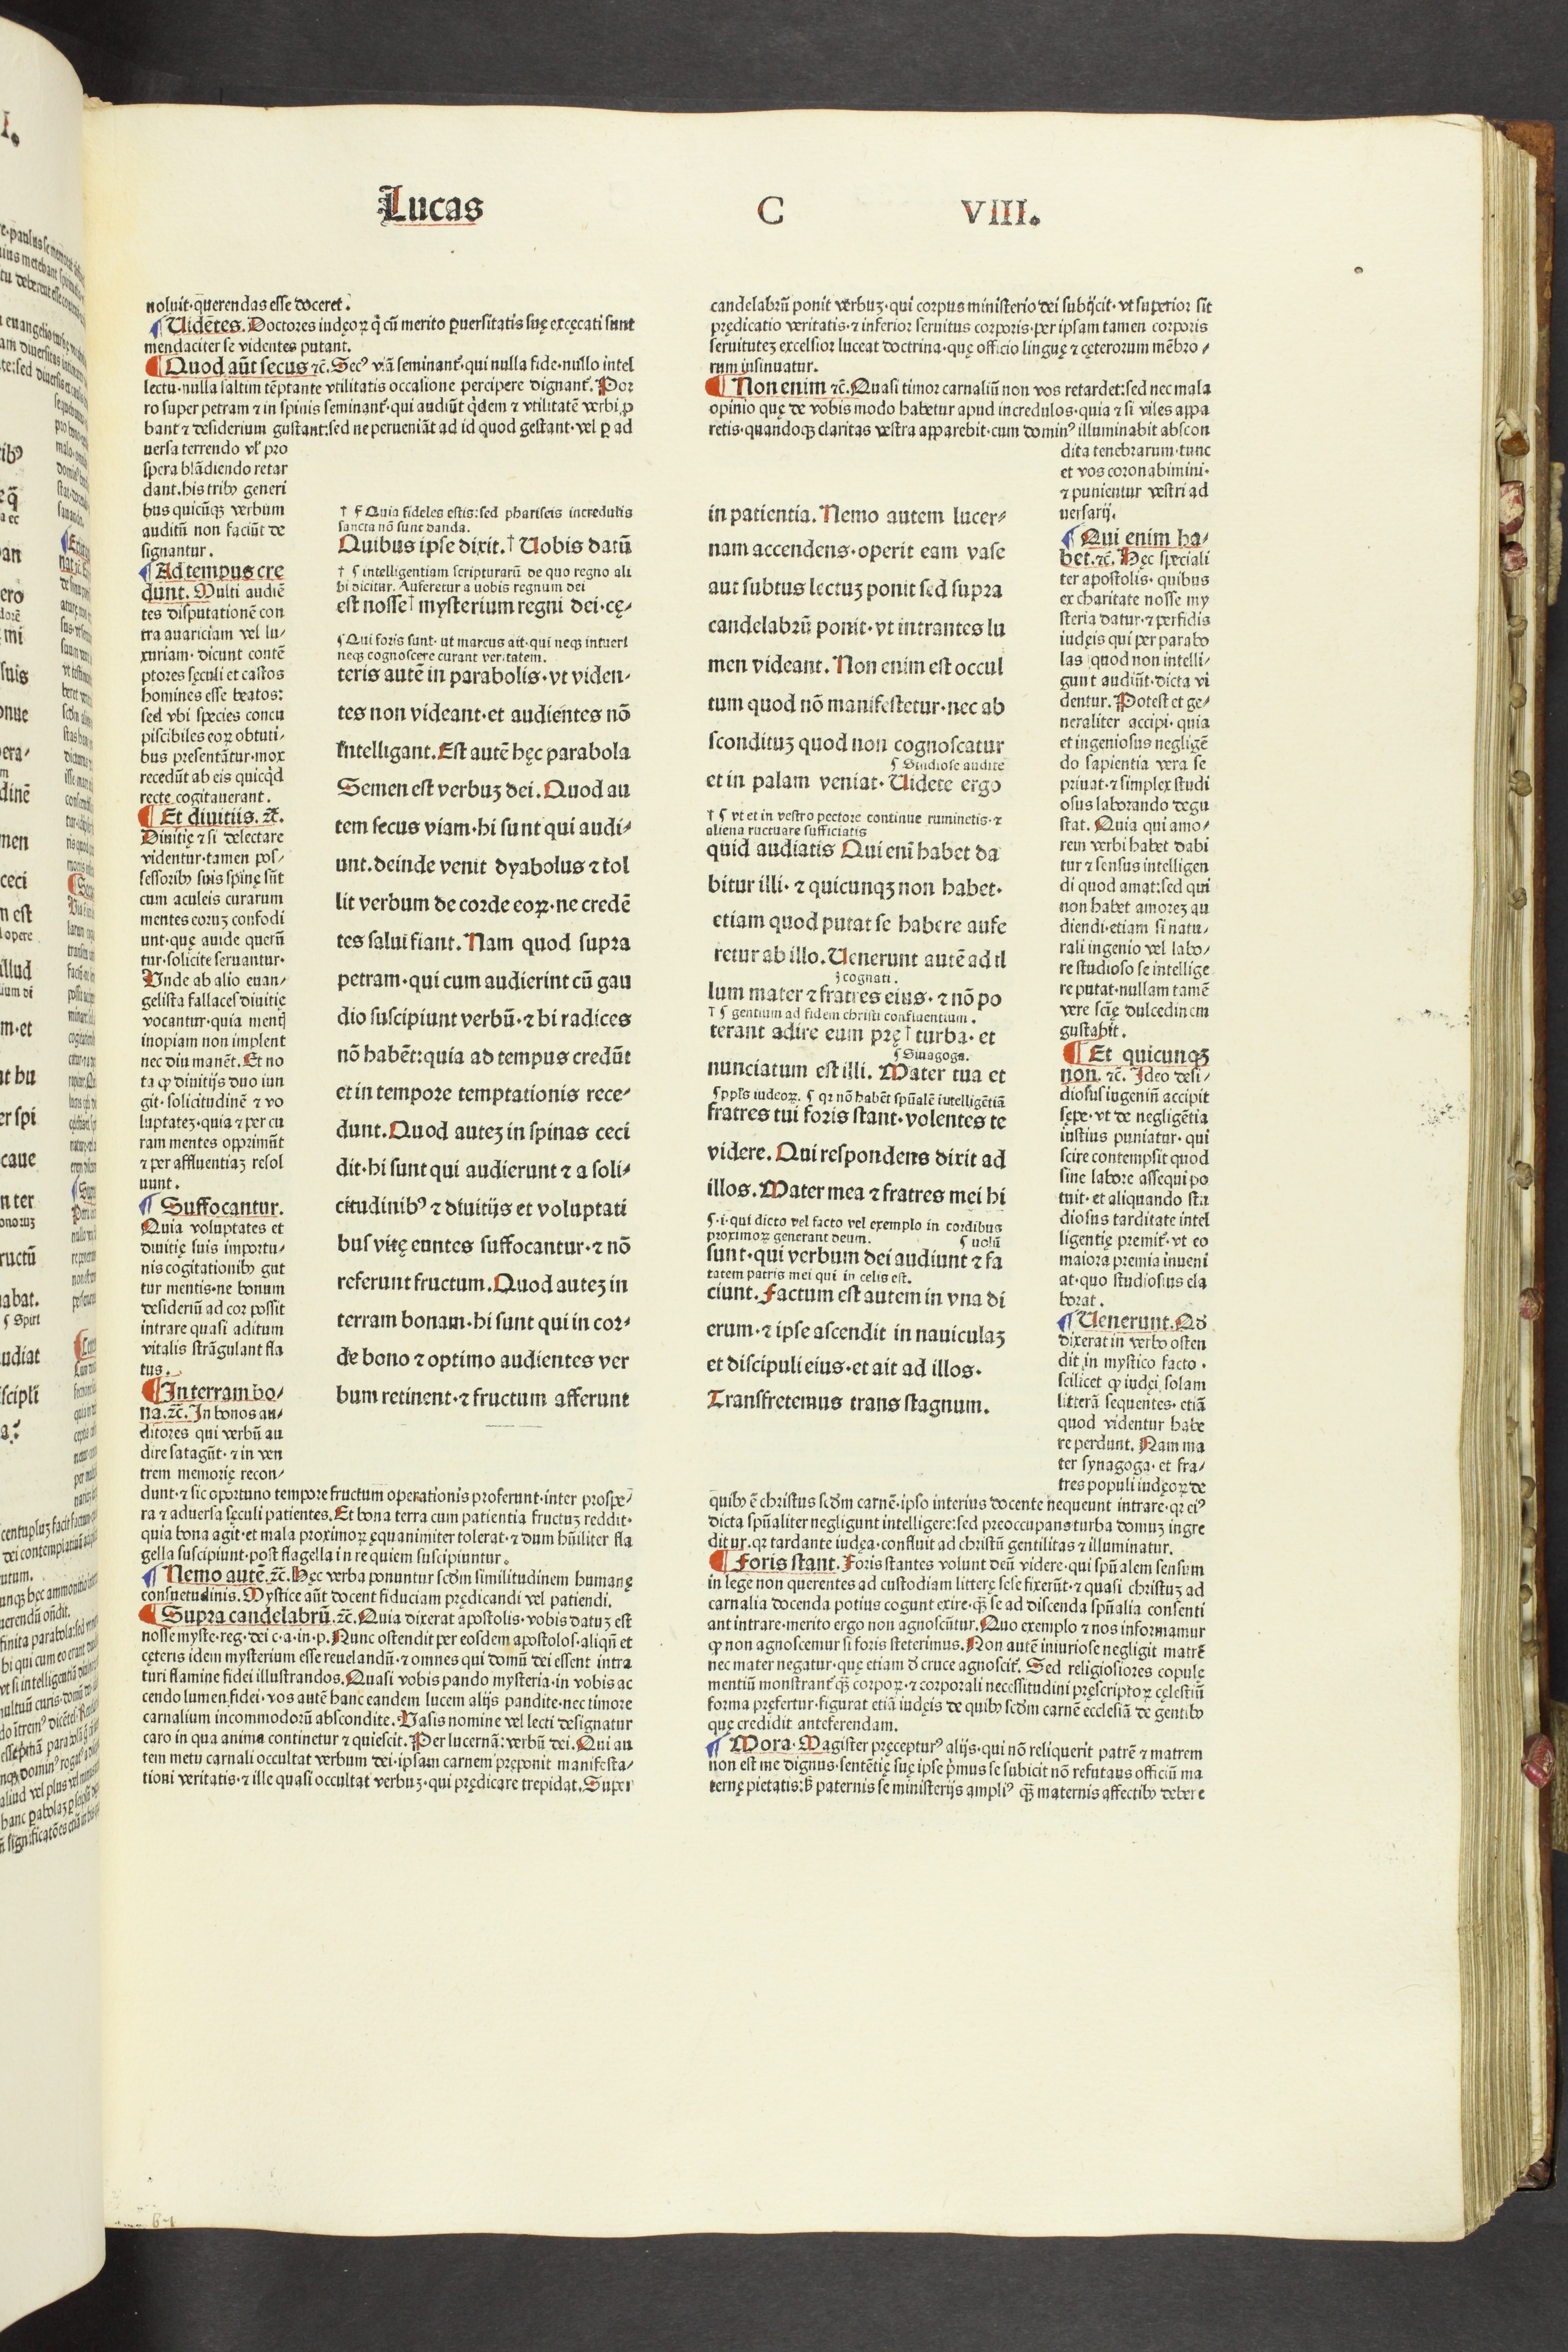 Lucas C VIII.
noluit·querendas esse doceret.
¶ Uidētes. Doctores iudęoꝝ q̇ cū merito ꝑuersitatis suę excęcati sunt
mendaciter se videntes putant.
¶ Quod aūt secus ⁊c̄. Secꝰ viā seminant̄·qui nulla fide·nullo intel
lectu·nulla saltim tēptante vtilitatis occasione percipere dignant̄. Por
ro super petram ⁊ in spinis seminant̄·qui audiūt q̇dem ⁊ vtilitatē verbi ꝓ
bant ⁊ desiderium gustant:sed ne perueniāt ad id quod gestant·vel ꝑ ad
uersa terrendo vl̓ pro
spera blādiendo retar
dant.his tribꝰ generi
bus quicūqꝫ verbum
auditū non faciūt de
signantur.
¶ Ad tempus cre
dunt. Multi audiē
tes disputationē con
tra auariciam vel lu⸗
xuriam·dicunt contē
ptores sęculi et castos
homines esse beatos:
sed vbi species concu
piscibiles eoꝝ obtuti⸗
bus presentātur·mox
recedūt ab eis quicq̇d
recte cogitauerant.
¶ Et diuitiis. ⁊c̄.
Diuitię ⁊ si delectare
videntur·tamen pos⸗
sessoribꝰ suis spinę sūt
cum aculeis curarum
mentes eoruꝫ confodi
unt·quę auide querū
tur·solicite seruantur·
Vnde ab alio euan⸗
gelista fallaces diuitię
vocantur·quia mentꝭ
inopiam non implent
nec diu manēt. Et no
ta ꝙ diuitijs duo iun
git·solicitudinē ⁊ vo
luptateꝫ·quia ⁊ per cu
ram mentes opprimūt
⁊ per affluentiaꝫ resol
uunt.
¶ Suffocantur.
Quia voluptates et
diuitię suis importu⸗
nis cogitationibꝰ gut
tur mentis·ne bonum
desideriū ad cor possit
intrare quasi aditum
vitalis strāgulant fla
tus.
¶ In terram bo⸗
na.⁊c̄. In bonos au⸗
ditores qui verbū au
dire satagūt·⁊ in ven
trem memorię recon⸗
dunt·⁊ sic oportuno tempore fructum operationis proferunt·inter prospe⸗
ra ⁊ aduersa sęculi patientes. Et bona terra cum patientia fructuꝫ reddit·
quia bona agit·et mala proximoꝝ ęquanimiter tolerat·⁊ dum hūiliter fla
gella suscipiunt·post flagella in requiem suscipiuntur.
¶ Nemo autē.⁊c̄. Hęc verba ponuntur scdm̄ similitudinem humanę
consuetudinis. Mystice aūt docent fiduciam prędicandi vel patiendi.
¶ Supra candelabrū.⁊c̄. Quia dixerat apostolis·vobis datuꝫ est
nosse myste·reg·dei c·a·in·p. Nunc ostendit per eosdem apostolos·aliqn̄ et
cęteris idem mysterium esse reuelandū·⁊ omnes qui domū dei essent intra
turi flamine fidei illustrandos. Quasi vobis pando mysteria·in vobis ac
cendo lumen fidei·vos autē hanc eandem lucem alijs pandite·nec timore
carnalium incommodorū abscondite. Vasis nomine vel lecti designatur
caro in qua anima continetur ⁊ quiescit. Per lucernā: verbū dei. Qui au
tem metu carnali occultat verbum dei·ipsam carnem pręponit manifesta⸗
tioni veritatis·⁊ ille quasi occultat verbuꝫ·qui prędicare trepidat. Super
† ¶ Quia fideles estis:sed phariseis incredulis
sancta nō sunt danda.
Quibus ipse dixit. † Uobis datū
† ¶ intelligentiam scripturarū de quo regno ali
bi dicitur. Auferetur a uobis regnum dei
est nosse † mysterium regni dei·cę⸗
¶ Qui foris sunt·ut marcus ait·qui neqꝫ intueri
neqꝫ cognoscere curant veritatem.
teris autē in parabolis·vt viden⸗
tes non videant·et audientes nō
intelligant. Est autē hęc parabola
Semen est verbuꝫ dei. Quod au
tem secus viam·hi sunt qui audi⸗
unt.deinde venit dyabolus ⁊ tol
lit verbum de corde eoꝝ·ne credē
tes salui fiant. Nam quod supra
petram·qui cum audierint cū gau
dio suscipiunt verbū·⁊ hi radices
nō habēt:quia ad tempus credūt
et in tempore temptationis rece⸗
dunt. Quod auteꝫ in spinas ceci
dit·hi sunt qui audierunt ⁊ a soli⸗
citudinibꝰ ⁊ diuitijs et voluptati
bus vitę euntes suffocantur·⁊ nō
referunt fructum. Quod auteꝫ in
terram bonam·hi sunt qui in cor⸗
de bono ⁊ optimo audientes ver
bum retinent·⁊ fructum afferunt
candelabrū ponit verbuꝫ·qui corpus ministerio dei subijcit·vt superior sit
prędicatio veritatis·⁊ inferior seruitus corporis·per ipsam tamen corporis
seruituteꝫ excelsior luceat doctrina·quę officio linguę ⁊ cęterorum mēbro⸗
rum insinuatur.
¶ Non enim ⁊c̄. Quasi timor carnaliū non vos retardet:sed nec mala
opinio quę de vobis modo habetur apud incredulos·quia ⁊ si viles appa
retis·quandoqꝫ claritas vestra apparebit·cum dominꝰ illuminabit abscon
dita tenebrarum·tunc
et vos coronabimini·
⁊ punientur vestri ad
uersarij.
in patientia. Nemo autem lucer⸗
nam accendens·operit eam vase
aut subtus lectuꝫ ponit sed supra
candelabrū ponit·vt intrantes lu
men videant. Non enim est occul
tum quod nō manifestetur·nec ab
sconditum quod non cognoscatur
¶ Studiose audite
et in palam veniat. Uidete ergo
† ¶ vt et in vestro pectore continue ruminetis·⁊
aliena ructuare sufficiatis
quid audiatis Qui enī habet da
bitur illi·⁊ quicunqꝫ non habet·
etiam quod putat se habere aufe
retur ab illo. Uenerunt autē ad il
ꝫ cognati.
lum mater ⁊ fratres eius·⁊ nō po
† ¶ gentium ad fidem christi confluentium.
terant adire eum prę † turba·et
¶ Sinagoga.
nunciatum est illi. Mater tua et
¶ ppl̓s iudeoꝝ. ¶ qꝛ nō habēt spūalē intelligētiā
fratres tui foris stant·volentes te
videre. Qui respondens dixit ad
illos. Mater mea ⁊ fratres mei hi
¶·i·qui dicto vel facto vel exemplo in cordibus
proximoꝝ generant deum. ¶ uolū
sunt·qui verbum dei audiunt ⁊ fa
tatem patris mei qui in celis est.
ciunt. Factum est autem in vna di
erum·⁊ ipse ascendit in nauiculaꝫ
et discipuli eius·et ait ad illos·
Transfretemus trans stagnum.
¶ Qui enim ha⸗
bet.⁊c̄. Hęc speciali
ter apostolis·quibus
ex charitate nosse my
steria datur·⁊ perfidis
iudęis qui per parabo
las quod non intelli⸗
gunt audiūt·dicta vi
dentur. Potest et ge⸗
neraliter accipi·quia
et ingeniosus negligē
do sapientia vera se
priuat·⁊ simplex studi
osus laborando degu
stat. Quia qui amo⸗
rem verbi habet dabi
tur ⁊ sensus intelligen
di quod amat:sed qui
non habet amoreꝫ au
diendi·etiam si natu⸗
rali ingenio vel labo⸗
re studioso se intellige
re putat·nullam tamē
vere sciē dulcedinem
gustabit.
¶ Et quicunqꝫ
non. ⁊c̄. Ideo desi⸗
diosus ingeniū accipit
sępe·vt de negligētia
iustius puniatur·qui
scire contempsit quod
sine labore assequi po
tuit·et aliquando stu
diosus tarditate intel
ligentię premit̄·vt eo
maiora premia inueni
at·quo studiosius ela
borat.
¶ Uenerunt. Qd
dixerat in verbo osten
dit in mystico facto·
scilicet ꝙ iudęi solam
litterā sequentes·etiā
quod videntur habe
re perdunt. Nam ma
ter synagoga·et fra⸗
tres populi iudęoꝝ de
quibꝰ ē christus scdm̄ carnē·ipso interius docente nequeunt intrare·qꝛ eiꝰ
dicta spūaliter negligunt intelligere:sed preoccupans turba domuꝫ ingre
ditur.qꝛ tardante iudęa·confluit ad christū gentilitas ⁊ illuminatur.
¶ Foris stant. Foris stantes volunt deū videre·qui spūalem sensum
in lege non querentes ad custodiam litterę sese fixerūt·⁊ quasi christuꝫ ad
carnalia docenda potius cogunt exire·qꝫ̄ se ad discenda spūalia consenti
ant intrare·merito ergo non agnoscūtur. Quo exemplo ⁊ nos informamur
ꝙ non agnoscemur si foris steterimus. Non autē iniuriose negligit matrē
nec mater negatur·quę etiam d̓ cruce agnoscit̄. Sed religiosiores copulę
mentiū monstrant̄ qꝫ̄ corpoꝝ·⁊ corporali necessitudini pręscriptoꝝ cęlestiū
forma pręfertur·figurat etiā iudęis de quibꝰ scdm̄ carnē ecclesiā de gentibꝰ
quę credidit anteferendam.
¶ Mora. Magister pręcepturꝰ alijs·qui nō reliquerit patrē ⁊ matrem
non est me dignus·sentētię suę ipse p̓mus se subicit nō refutans officiū ma
ternę pietatis:sꝫ paternis se ministerijs ampliꝰ qꝫ̄ maternis affectibꝰ debere